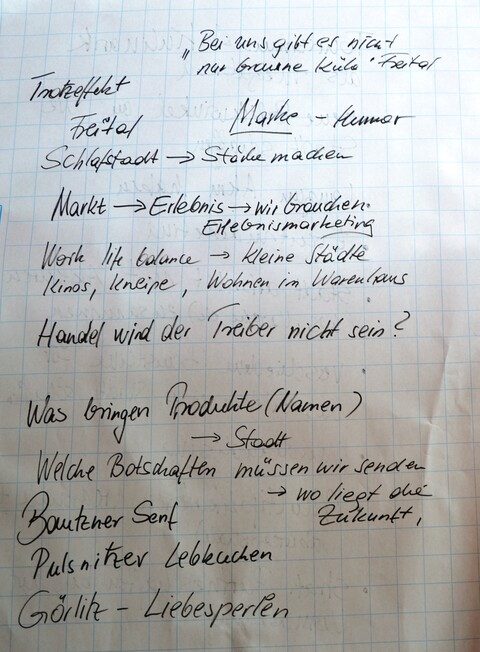 „Bei uns gibt es nicht
nur braune Kühe" Freital
Trotzeffekt
Freital Marke - Humor
Schlafstadt → Stärke machen
Markt → Erlebnis → wir brauchen
Erlebnismarketing
Work life balance → kleine Städte
Kinos, Kneipe, Wohnen im Warenhaus
Handel wird der Treiber nicht sein?
Was bringen Produkte (Namen)
→ Stadt
Welche Botschaften müssen wir senden
→ wo liegt die
Zukunft,
Bautzner Senf
Pulsnitzer Lebkuchen
Görlitz - Liebesperlen